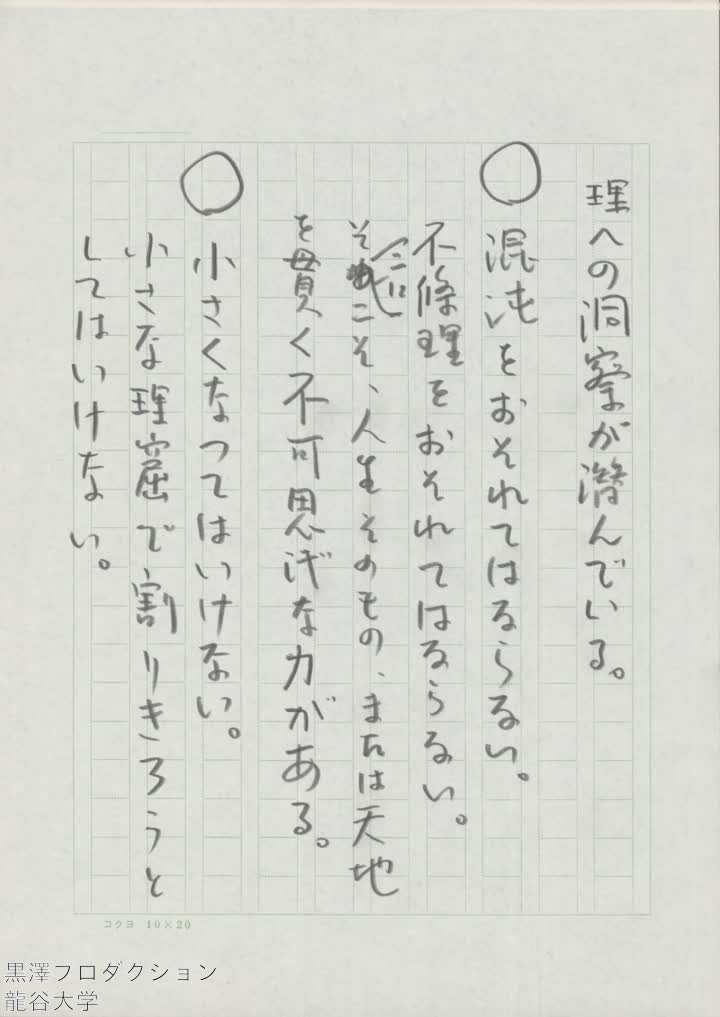 理への洞察が潜んでいる。
○ 混沌をおそれてはならない。
不條理をおそれてはならない。
そこにこそ、人生そのもの、または天地
を貫く不可思議な力がある。
○ 小さくなつてはいけない。
小さな理窟で割りきろうと
してはいけない。
コクヨ 10×20
黒澤プロダクション
龍谷大学